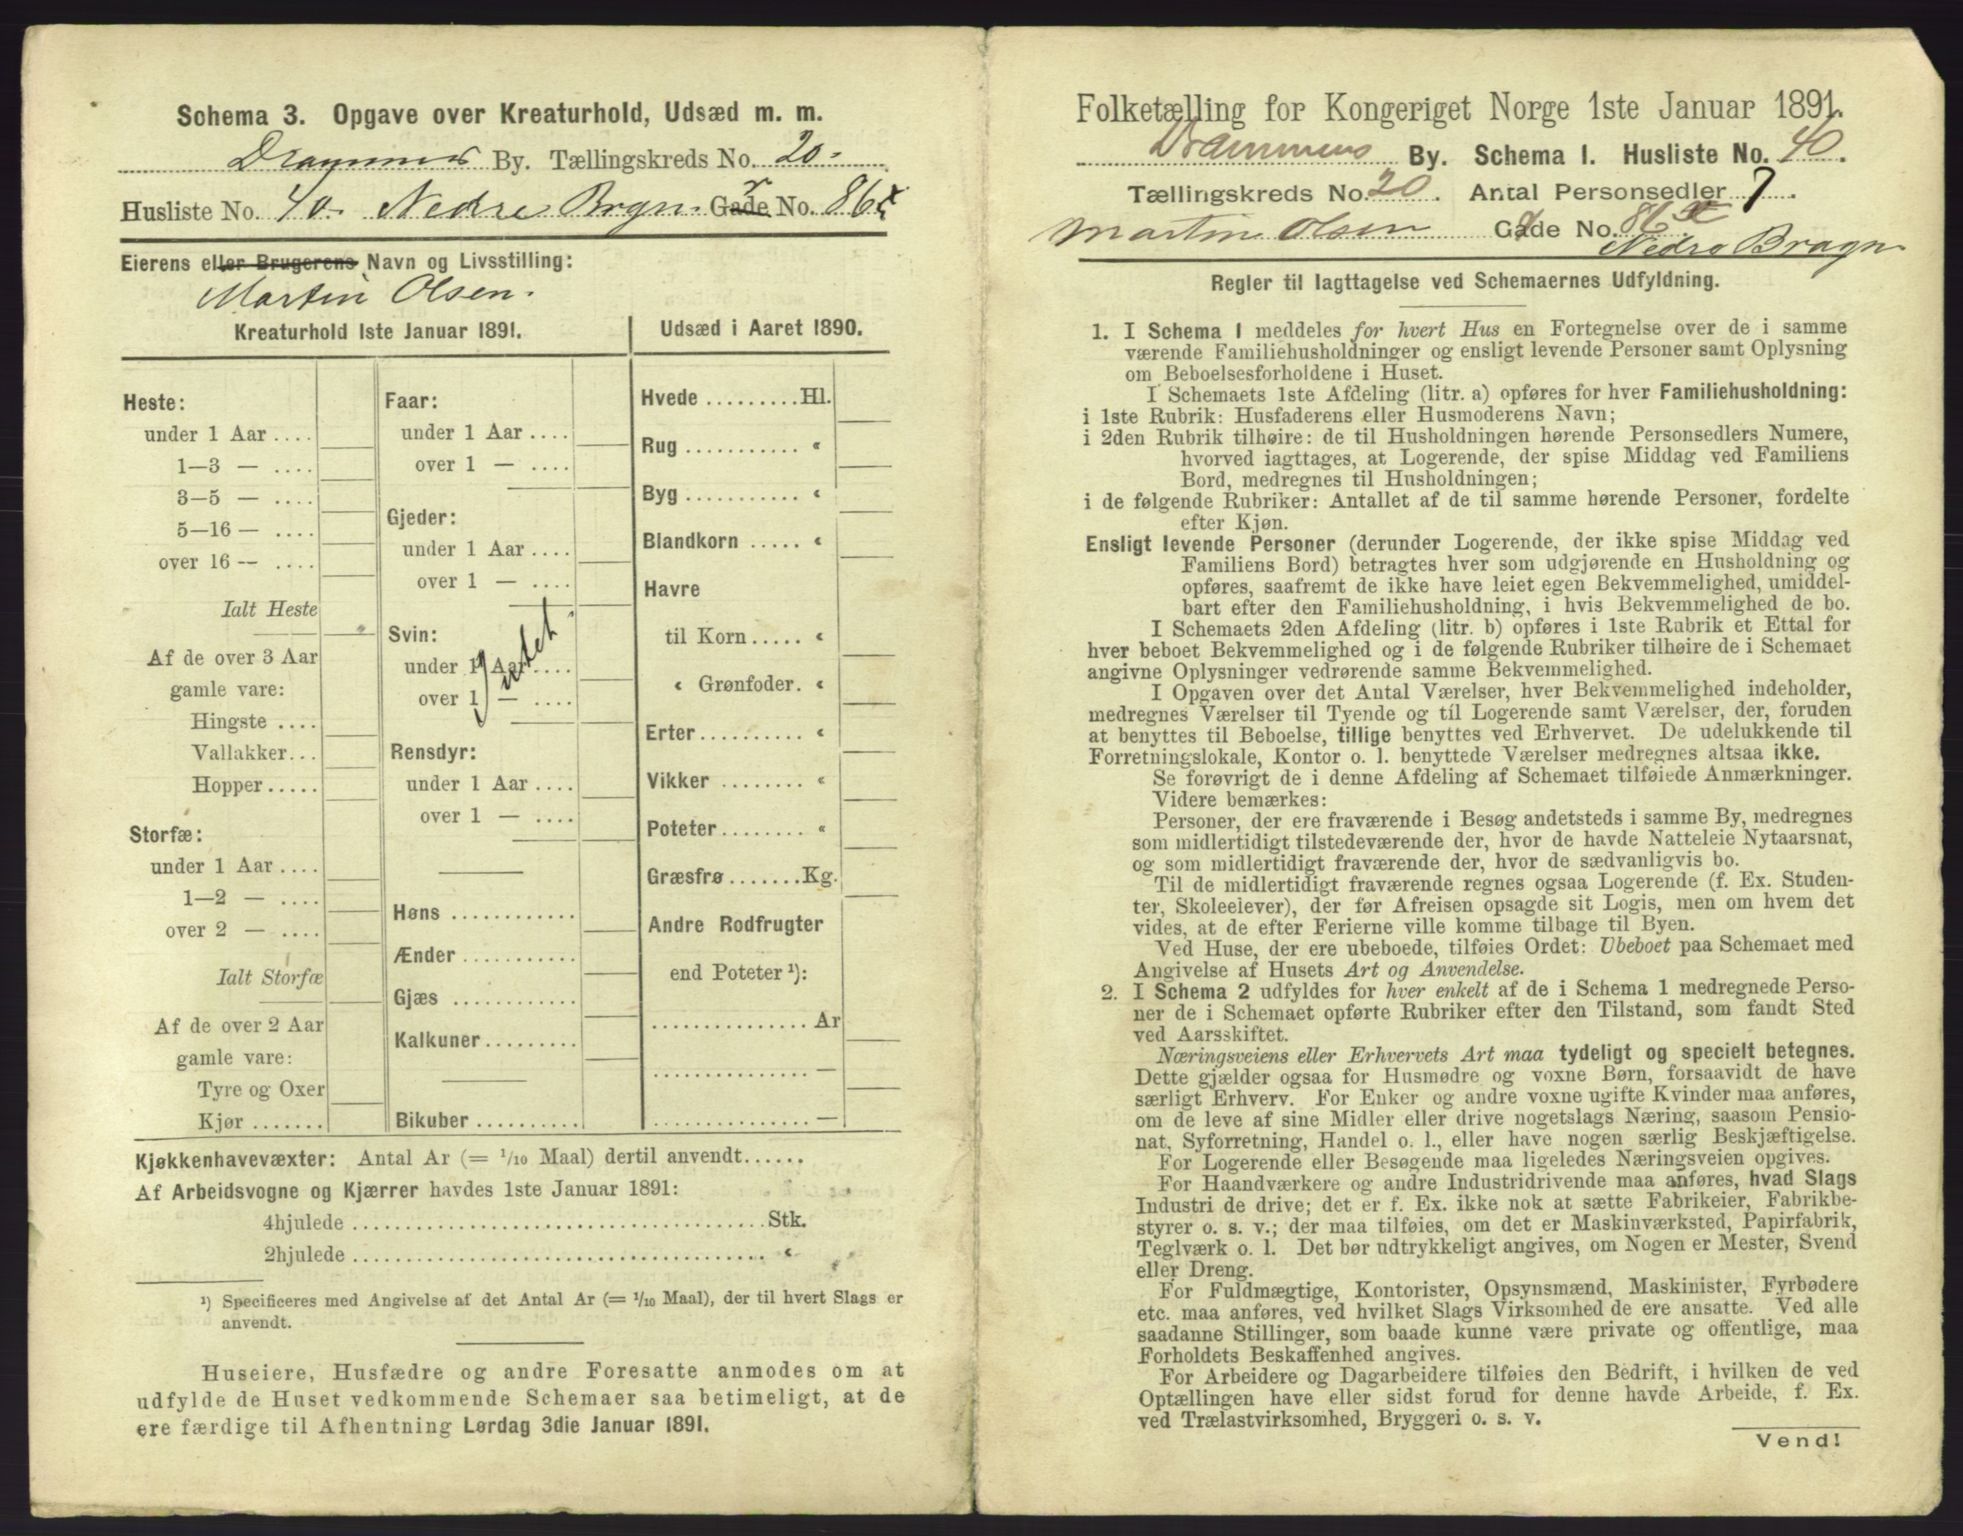 Schema 3. Opgave over Kreaturhold, Udsæd m. m.
Drammens By. Tællingskreds No. 20.
Husliste No. 40. Nedre Bragn. Gade No. 86
Eierens eller Brugerens Navn og Livsstilling:
Martin Olsen.
Kreaturhold 1ste Januar 1891.
Heste:
under 1 Aar ....
1—3 — ....
3—5 — ....
5—16 — ....
over 16 -- ....
Ialt Heste
Af de over 3 Aar
gamle vare:
Hingste ....
Vallakker...
Hopper.....
Storfæ:
under 1 Aar ....
1—2 — ....
over 2 — ....
Ialt Storfæ
Af de over 2 Aar
gamle vare:
Tyre og Oxer
Kjør .......
Faar:
under 1 Aar ....
over 1 — ....
Gjeder:
under 1 Aar ....
over 1 — ....
Svin:
under 1 Aar ....
over 1 — ....
Intet.
Rensdyr:
under 1 Aar ....
over 1 — ....
Høns ............
Ænder ...........
Gjæs ............
Kalkuner.........
Bikuber ..........
Udsæd i Aaret 1890.
Hvede .........Hl.
Rug ........... «
Byg ........... «
Blandkorn ..... «
Havre
til Korn ..... «
« Grønfoder. «
Erter.......... «
Vikker ........ «
Poteter........ «
Græsfrø .......Kg.
Andre Rodfrugter
end Poteter ¹):
............... Ar
............... —
............... —
Kjøkkenhavevæxter: Antal Ar (= 1/10 Maal) dertil anvendt......
Af Arbeidsvogne og Kjærrer havdes 1ste Januar 1891:
4hjulede ........................................Stk.
2hjulede ........................................ «
¹) Specificeres med Angivelse af det Antal Ar (= 1/10 Maal), der til hvert Slags er
anvendt.
Huseiere, Husfædre og andre Foresatte anmodes om at
udfylde de Huset vedkommende Schemaer saa betimeligt, at de
ere færdige til Afhentning Lørdag 3die Januar 1891.
Folketælling for Kongeriget Norge 1ste Januar 1891.
Drammens By. Schema I. Husliste No. 40.
Tællingskreds No. 20. Antal Personsedler 7.
Martin Olsen Gade No. 86
Nedre Bragn
Regler til Iagttagelse ved Schemaernes Udfyldning.
1. I Schema 1 meddeles for hvert Hus en Fortegnelse over de i samme
værende Familiehusholdninger og ensligt levende Personer samt Oplysning
om Beboelsesforholdene i Huset.
I Schemaets 1ste Afdeling (litr. a) opføres for hver Familiehusholdning:
i 1ste Rubrik: Husfaderens eller Husmoderens Navn;
i 2den Rubrik tilhøire: de til Husholdningen hørende Personsedlers Numere,
hvorved iagttages, at Logerende, der spise Middag ved Familiens
Bord, medregnes til Husholdningen;
i de følgende Rubriker: Antallet af de til samme hørende Personer, fordelte
efter Kjøn.
Ensligt levende Personer (derunder Logerende, der ikke spise Middag ved
Familiens Bord) betragtes hver som udgjørende en Husholdning og
opføres, saafremt de ikke have leiet egen Bekvemmelighed, umiddel-
bart efter den Familiehusholdning, i hvis Bekvemmelighed de bo.
I Schemaets 2den Afdeling (litr. b) opføres i 1ste Rubrik et Ettal for
hver beboet Bekvemmelighed og i de følgende Rubriker tilhøire de i Schemaet
angivne Oplysninger vedrørende samme Bekvemmelighed.
I Opgaven over det Antal Værelser, hver Bekvemmelighed indeholder,
medregnes Værelser til Tyende og til Logerende samt Værelser, der, foruden
at benyttes til Beboelse, tillige benyttes ved Erhvervet. De udelukkende til
Forretningslokale, Kontor o. l. benyttede Værelser medregnes altsaa ikke.
Se forøvrigt de i denne Afdeling af Schemaet tilføiede Anmærkninger.
Videre bemærkes:
Personer, der ere fraværende i Besøg andetsteds i samme By, medregnes
som midlertidigt tilstedeværende der, hvor de havde Natteleie Nytaarsnat,
og som midlertidigt fraværende der, hvor de sædvanligvis bo.
Til de midlertidigt fraværende regnes ogsaa Logerende (f. Ex. Studen-
ter, Skoleeiever), der før Afreisen opsagde sit Logis, men om hvem det
vides, at de efter Ferierne ville komme tilbage til Byen.
Ved Huse, der ere ubeboede, tilføies Ordet: Ubeboet paa Schemaet med
Angivelse af Husets Art og Anvendelse.
2. I Schema 2 udfyldes for hver enkelt af de i Schema 1 medregnede Perso-
ner de i Schemaet opførte Rubriker efter den Tilstand, som fandt Sted
ved Aarsskiftet.
Næringsveiens eller Erhvervets Art maa tydeligt og specielt betegnes.
Dette gjælder ogsaa for Husmødre og voxne Børn, forsaavidt de have
særligt Erhverv. For Enker og andre voxne ugifte Kvinder maa anføres,
om de leve af sine Midler eller drive nogetslags Næring, saasom Pensio-
nat, Syforretning, Handel o. l., eller have nogen særlig Beskjæftigelse.
For Logerende eller Besøgende maa ligeledes Næringsveien opgives.
For Haandværkere og andre Industridrivende maa anføres, hvad Slags
Industri de drive; det er f. Ex. ikke nok at sætte Fabrikeier, Fabrikbe-
styrer o. s. v.; der maa tilføies, om det er Maskinværksted, Papirfabrik,
Teglværk o. l. Det bør udtrykkeligt angives, om Nogen er Mester, Svend
eller Dreng.
For Fuldmægtige, Kontorister, Opsynsmænd, Maskinister, Fyrbødere
etc. maa anføres, ved hvilket Slags Virksomhed de ere ansatte. Ved alle
saadanne Stillinger, som baade kunne være private og offentlige, maa
Forholdets Beskaffenhed angives.
For Arbeidere og Dagarbeidere tilføies den Bedrift, i hvilken de ved
Optællingen have eller sidst forud for denne havde Arbeide, f. Ex.
ved Trælastvirksomhed, Bryggeri o. s. v.
Vend!